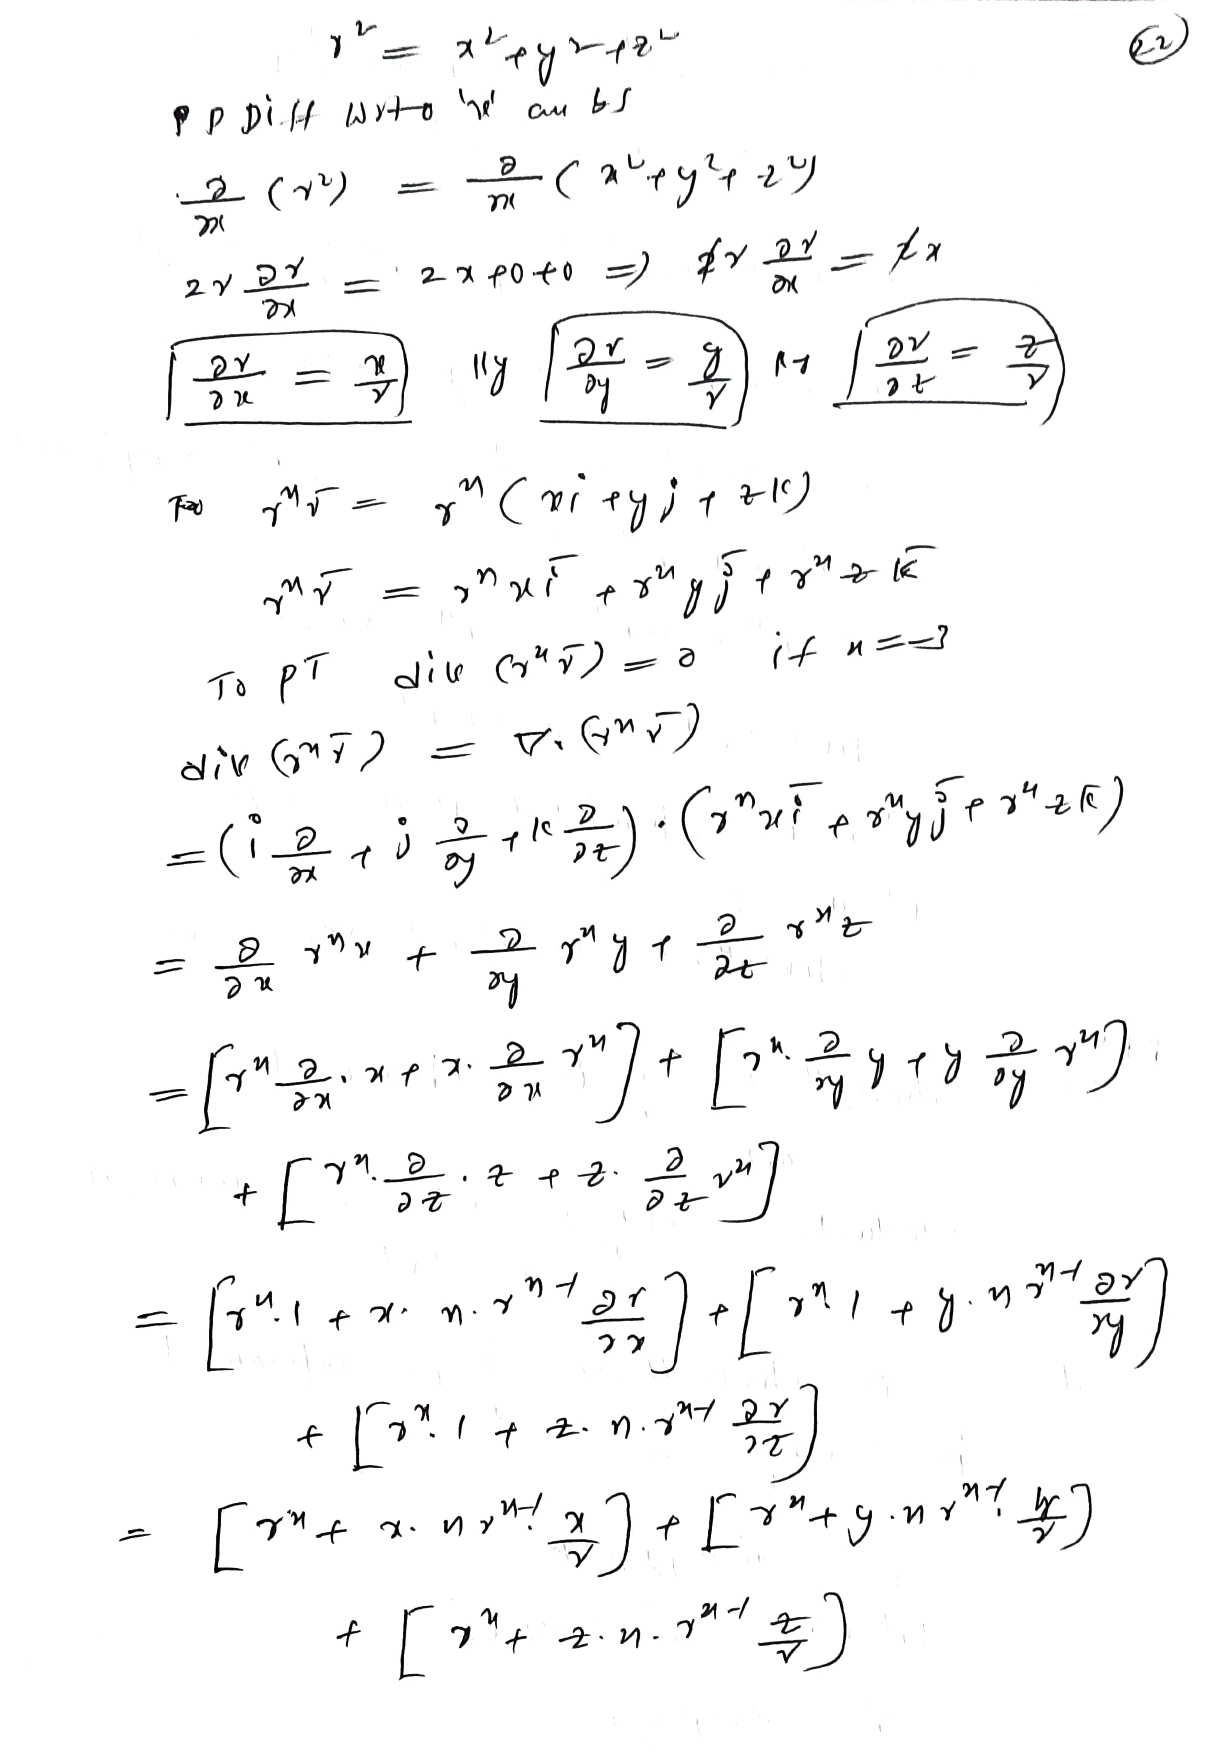 22
r² = x² + y² + z²
P D Diff w.r.to 'x' on bs
∂/∂x (r²) = ∂/∂x (x² + y² + z²)
2r ∂r/∂x = 2x + 0 + 0 => 2r ∂r/∂x = 2x
∂r/∂x = x/r lly ∂r/∂y = y/r ∂r/∂z = z/r
For rⁿ r̄ = rⁿ (xi + yj + zk)
rⁿ r̄ = rⁿ x ī + rⁿ y j̄ + rⁿ z k̄
To PT div (rⁿ r̄) = 0 if n = -3
div (rⁿ r̄) = ∇. (rⁿ r̄)
= (i ∂/∂x + j ∂/∂y + k ∂/∂z) . (rⁿ x ī + rⁿ y j̄ + rⁿ z k̄)
= ∂/∂x rⁿ x + ∂/∂y rⁿ y + ∂/∂z rⁿ z
= [rⁿ ∂/∂x . x + x. ∂/∂x rⁿ] + [rⁿ. ∂/∂y y + y ∂/∂y rⁿ]
+ [rⁿ. ∂/∂z . z + z. ∂/∂z rⁿ]
= [rⁿ.1 + x. n. rⁿ⁻¹ ∂r/∂x] + [rⁿ. 1 + y. n rⁿ⁻¹ ∂r/∂y]
+ [rⁿ. 1 + z. n. rⁿ⁻¹ ∂r/∂z]
= [rⁿ + x. n rⁿ⁻¹. x/r] + [rⁿ + y. n rⁿ⁻¹. y/r]
+ [rⁿ + z. n. rⁿ⁻¹ z/r]